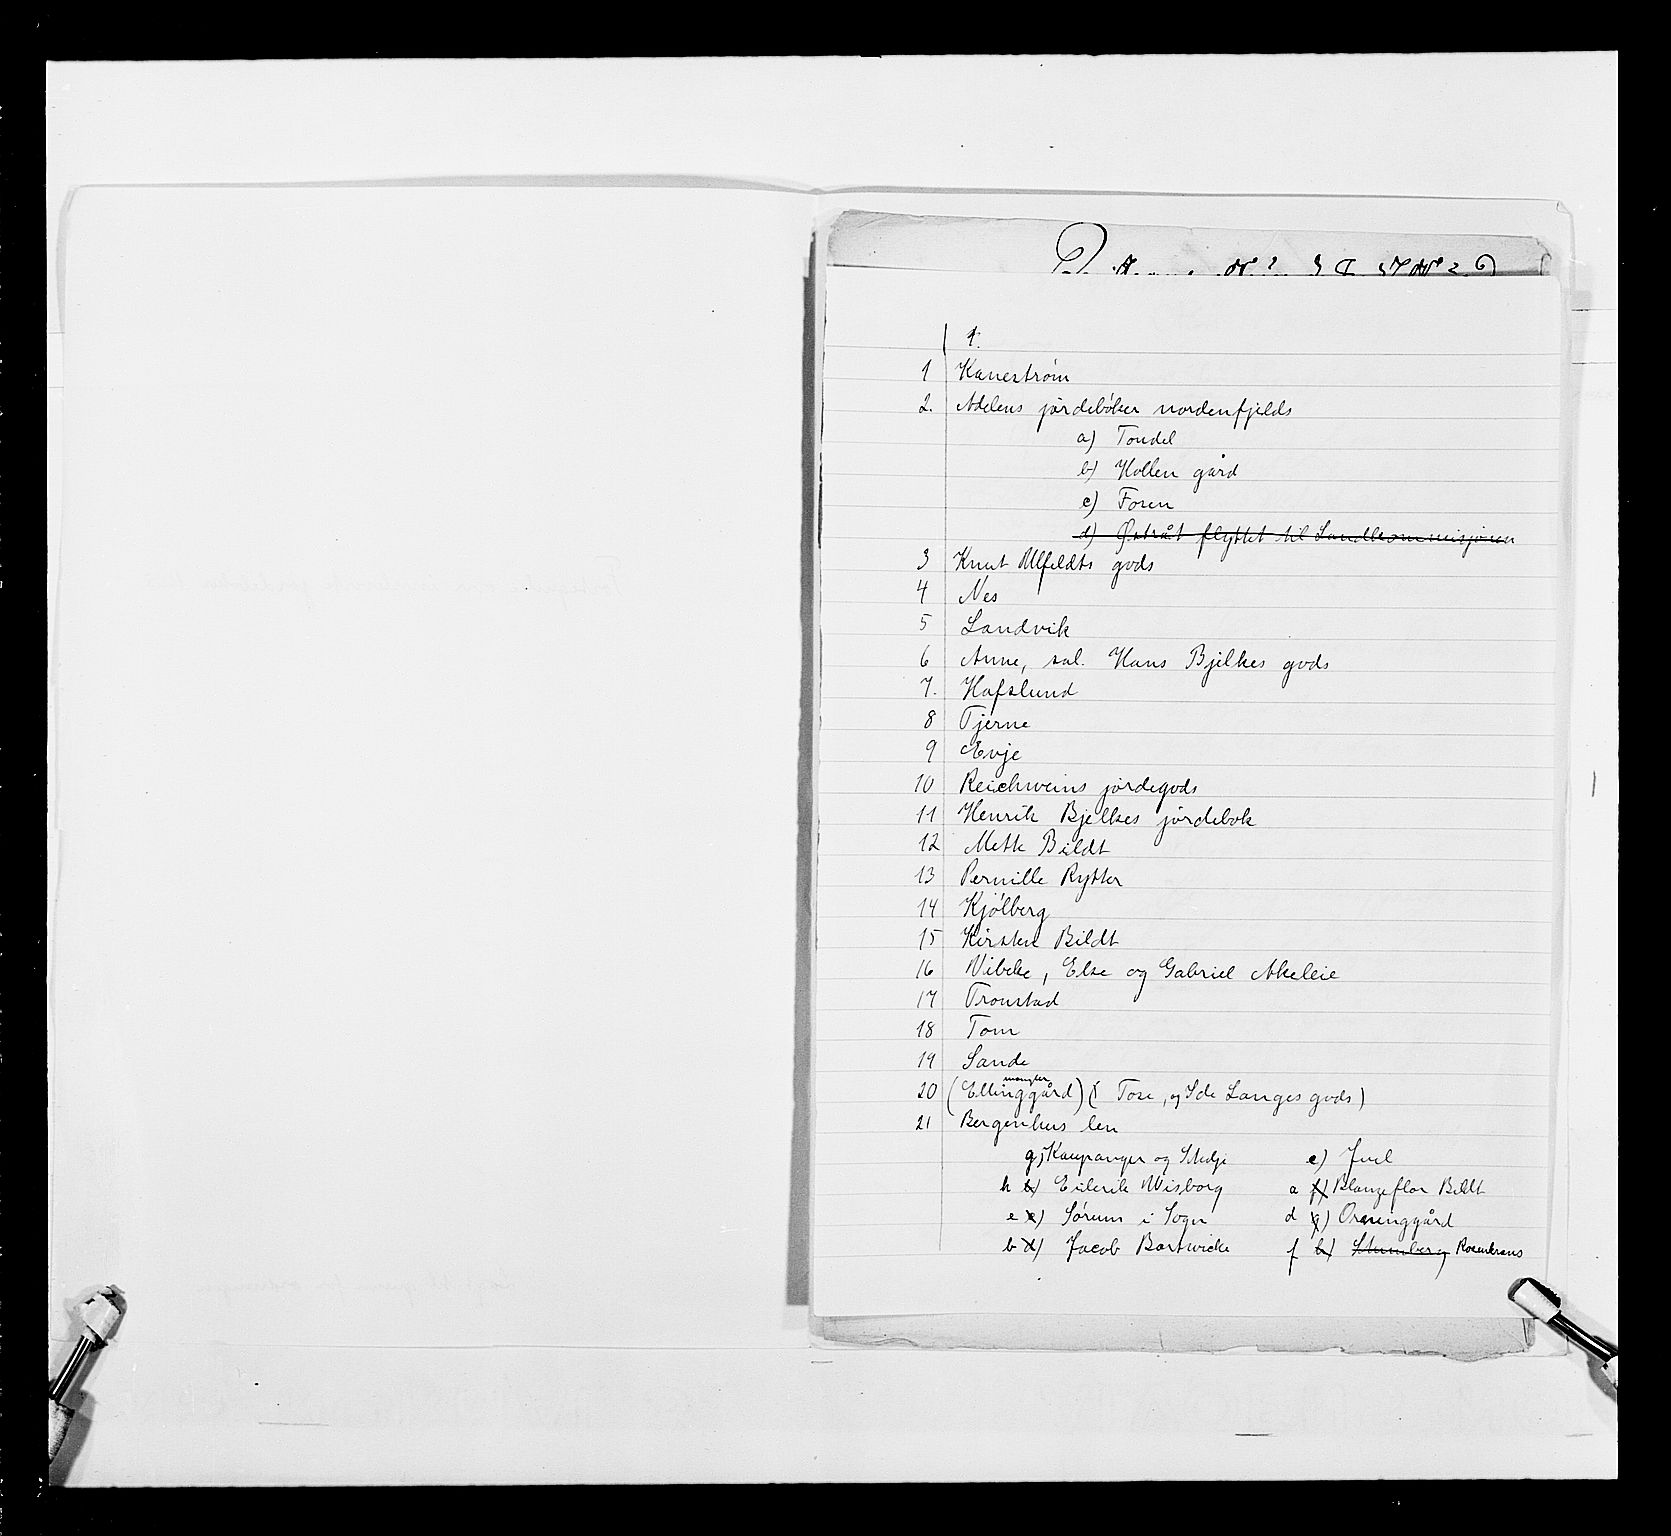 1.
1 Kanestrøm
2. Adelens jordebøker nordenfjelds
a) Tondel
b) Hollen gård
c) Fosen
d) Østråt flyttet til Landkommisjonen
3 Knut Ulfeldts gods
4 Nes
5 Landvik
6 Anne, sal. Hans Bjelkes gods
7. Hafslund
8 Tjerne
9 Evje
10 Reichweins jordegods
11 Henrik Bjelkes jordebok
12 Mette Bildt
13 Pernille Rytter
14 Kjølberg
15 Kirsten Bildt
16 Vibeke, Else og Gabriel Akeleie
17 Tronstad
18 Tom
19 Sande
mangler
20 (Ellinggård) ( Tose, og Ide Langes gods)
21 Bergenhus len
g) Kaupanger og Stedje e) Juel
h b) Eilerik Wisborg a f) Blanzeflor Bildt
e c) Sørum i Sogn d g) Oreninggård
b d) Jacob Bostwicke f h) Rosenkrans